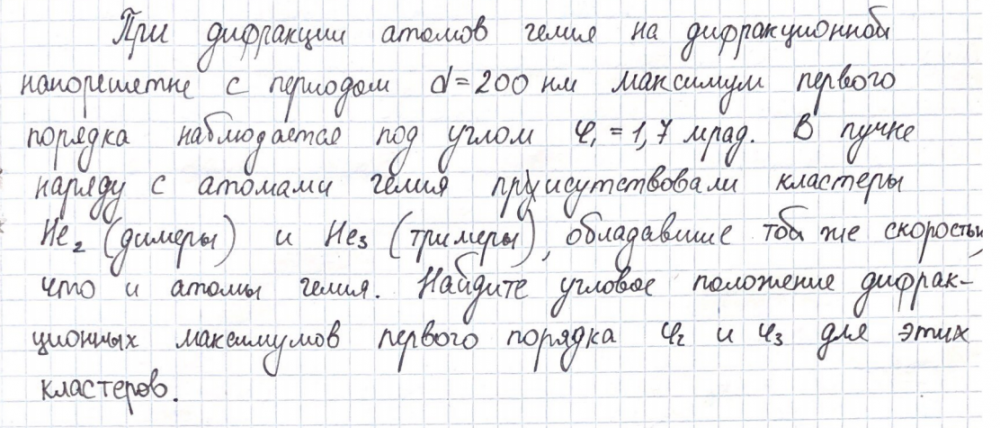 При дифракции атомов гелия на дифракционной
нанорешетке с периодом d=200 нм максимум первого
порядка наблюдается под углом φ₁ = 1,7 мрад. В пучке
наряду с атомами гелия присутствовали кластеры
He₂ (димеры) и He₃ (тримеры), обладавшие той же скоростью,
что и атомы гелия. Найдите угловое положение дифрак-
ционных максимумов первого порядка φ₂ и φ₃ для этих
кластеров.